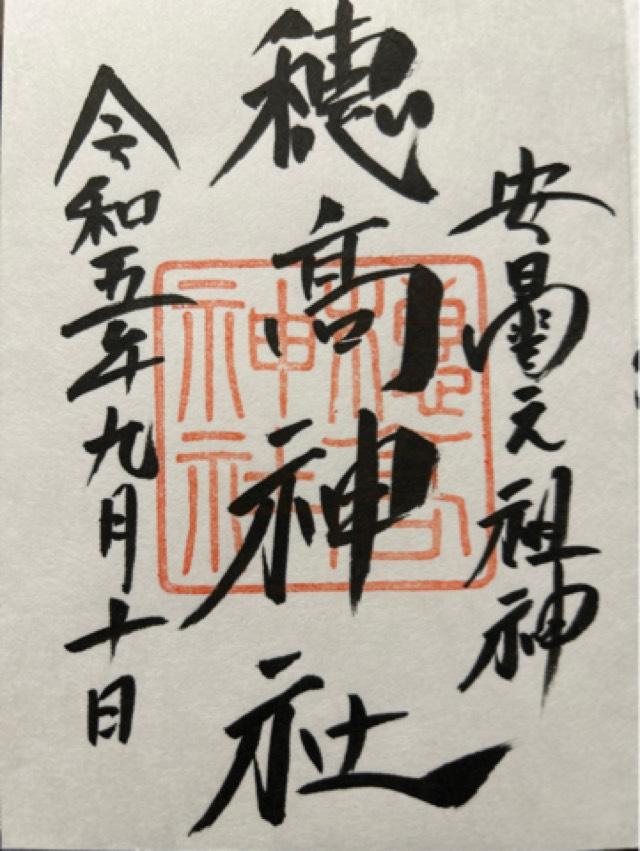 安曇元祖神
穂髙神社
令和五年九月十日
穂髙
神社